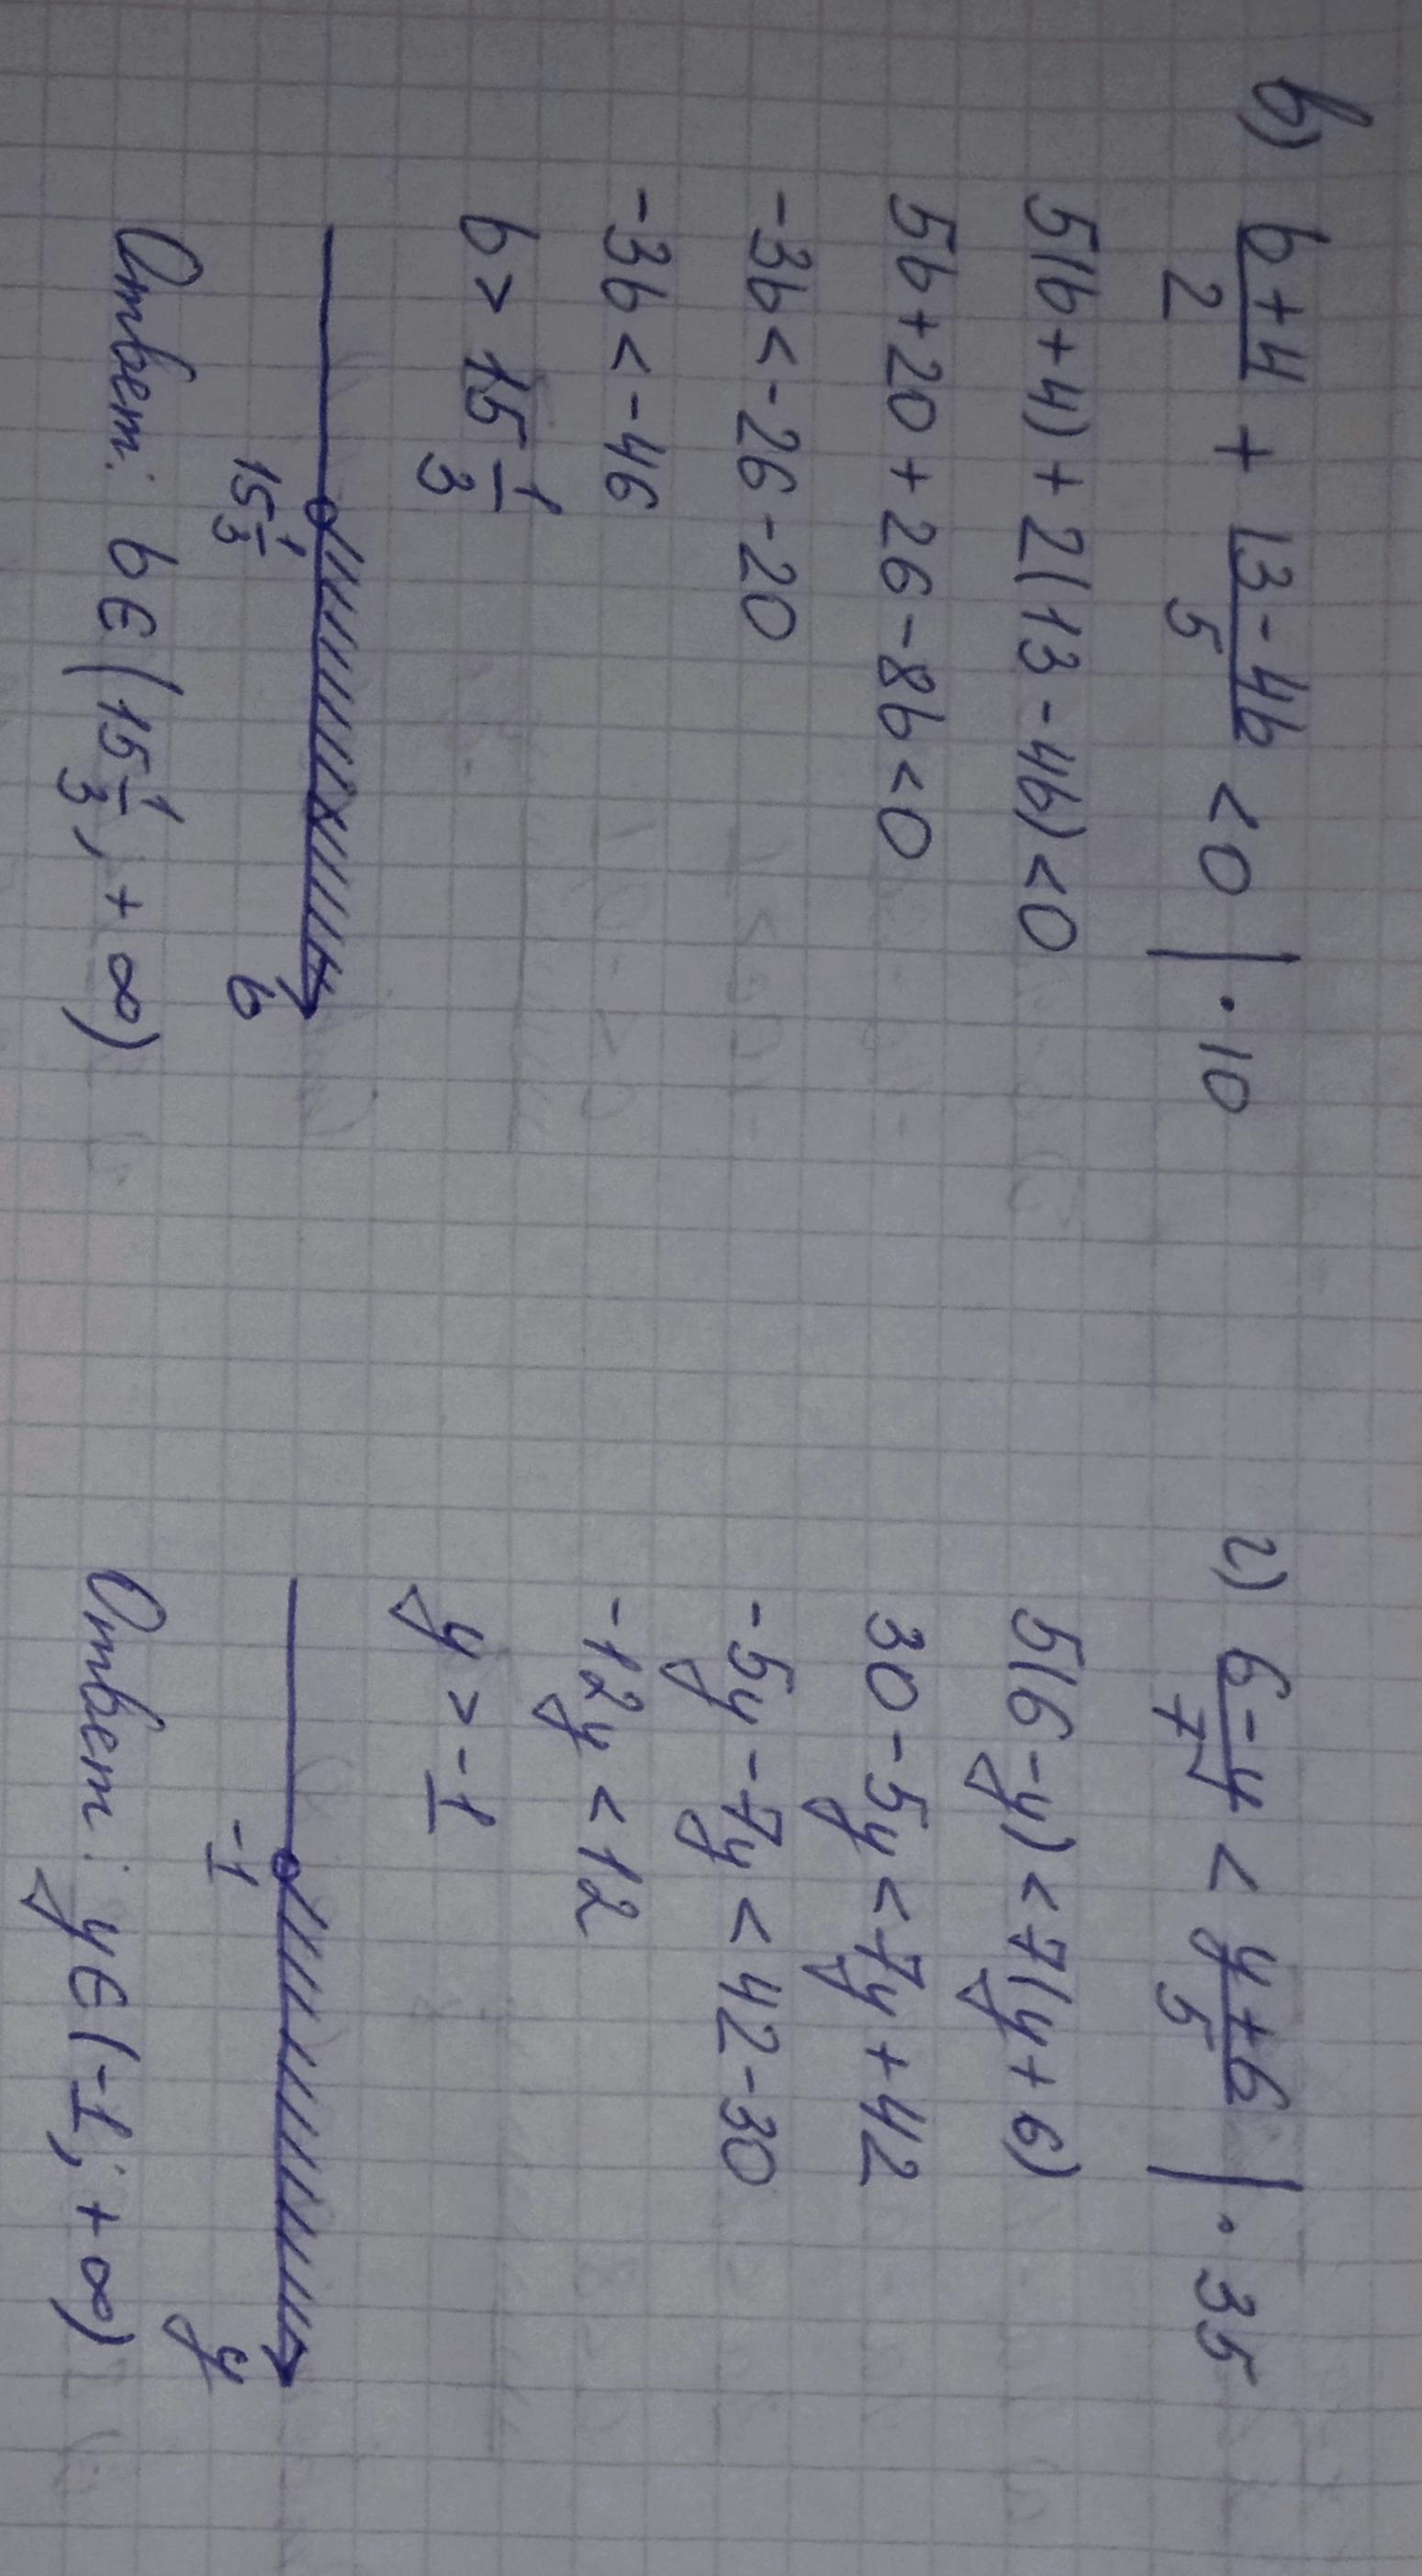 в) (b+4)/2 + (13-4b)/5 < 0 | · 10
5(b+4) + 2(13-4b) < 0
5b + 20 + 26 - 8b < 0
-3b < -26 - 20
-3b < -46
b > 15 1/3
15 1/3 b
Ответ: b ∈ (15 1/3; +∞)
г) (6-y)/7 < (y+6)/5 | · 35
5(6-y) < 7(y+6)
30 - 5y < 7y + 42
-5y - 7y < 42 - 30
-12y < 12
y > -1
-1 y
Ответ: y ∈ (-1; +∞)